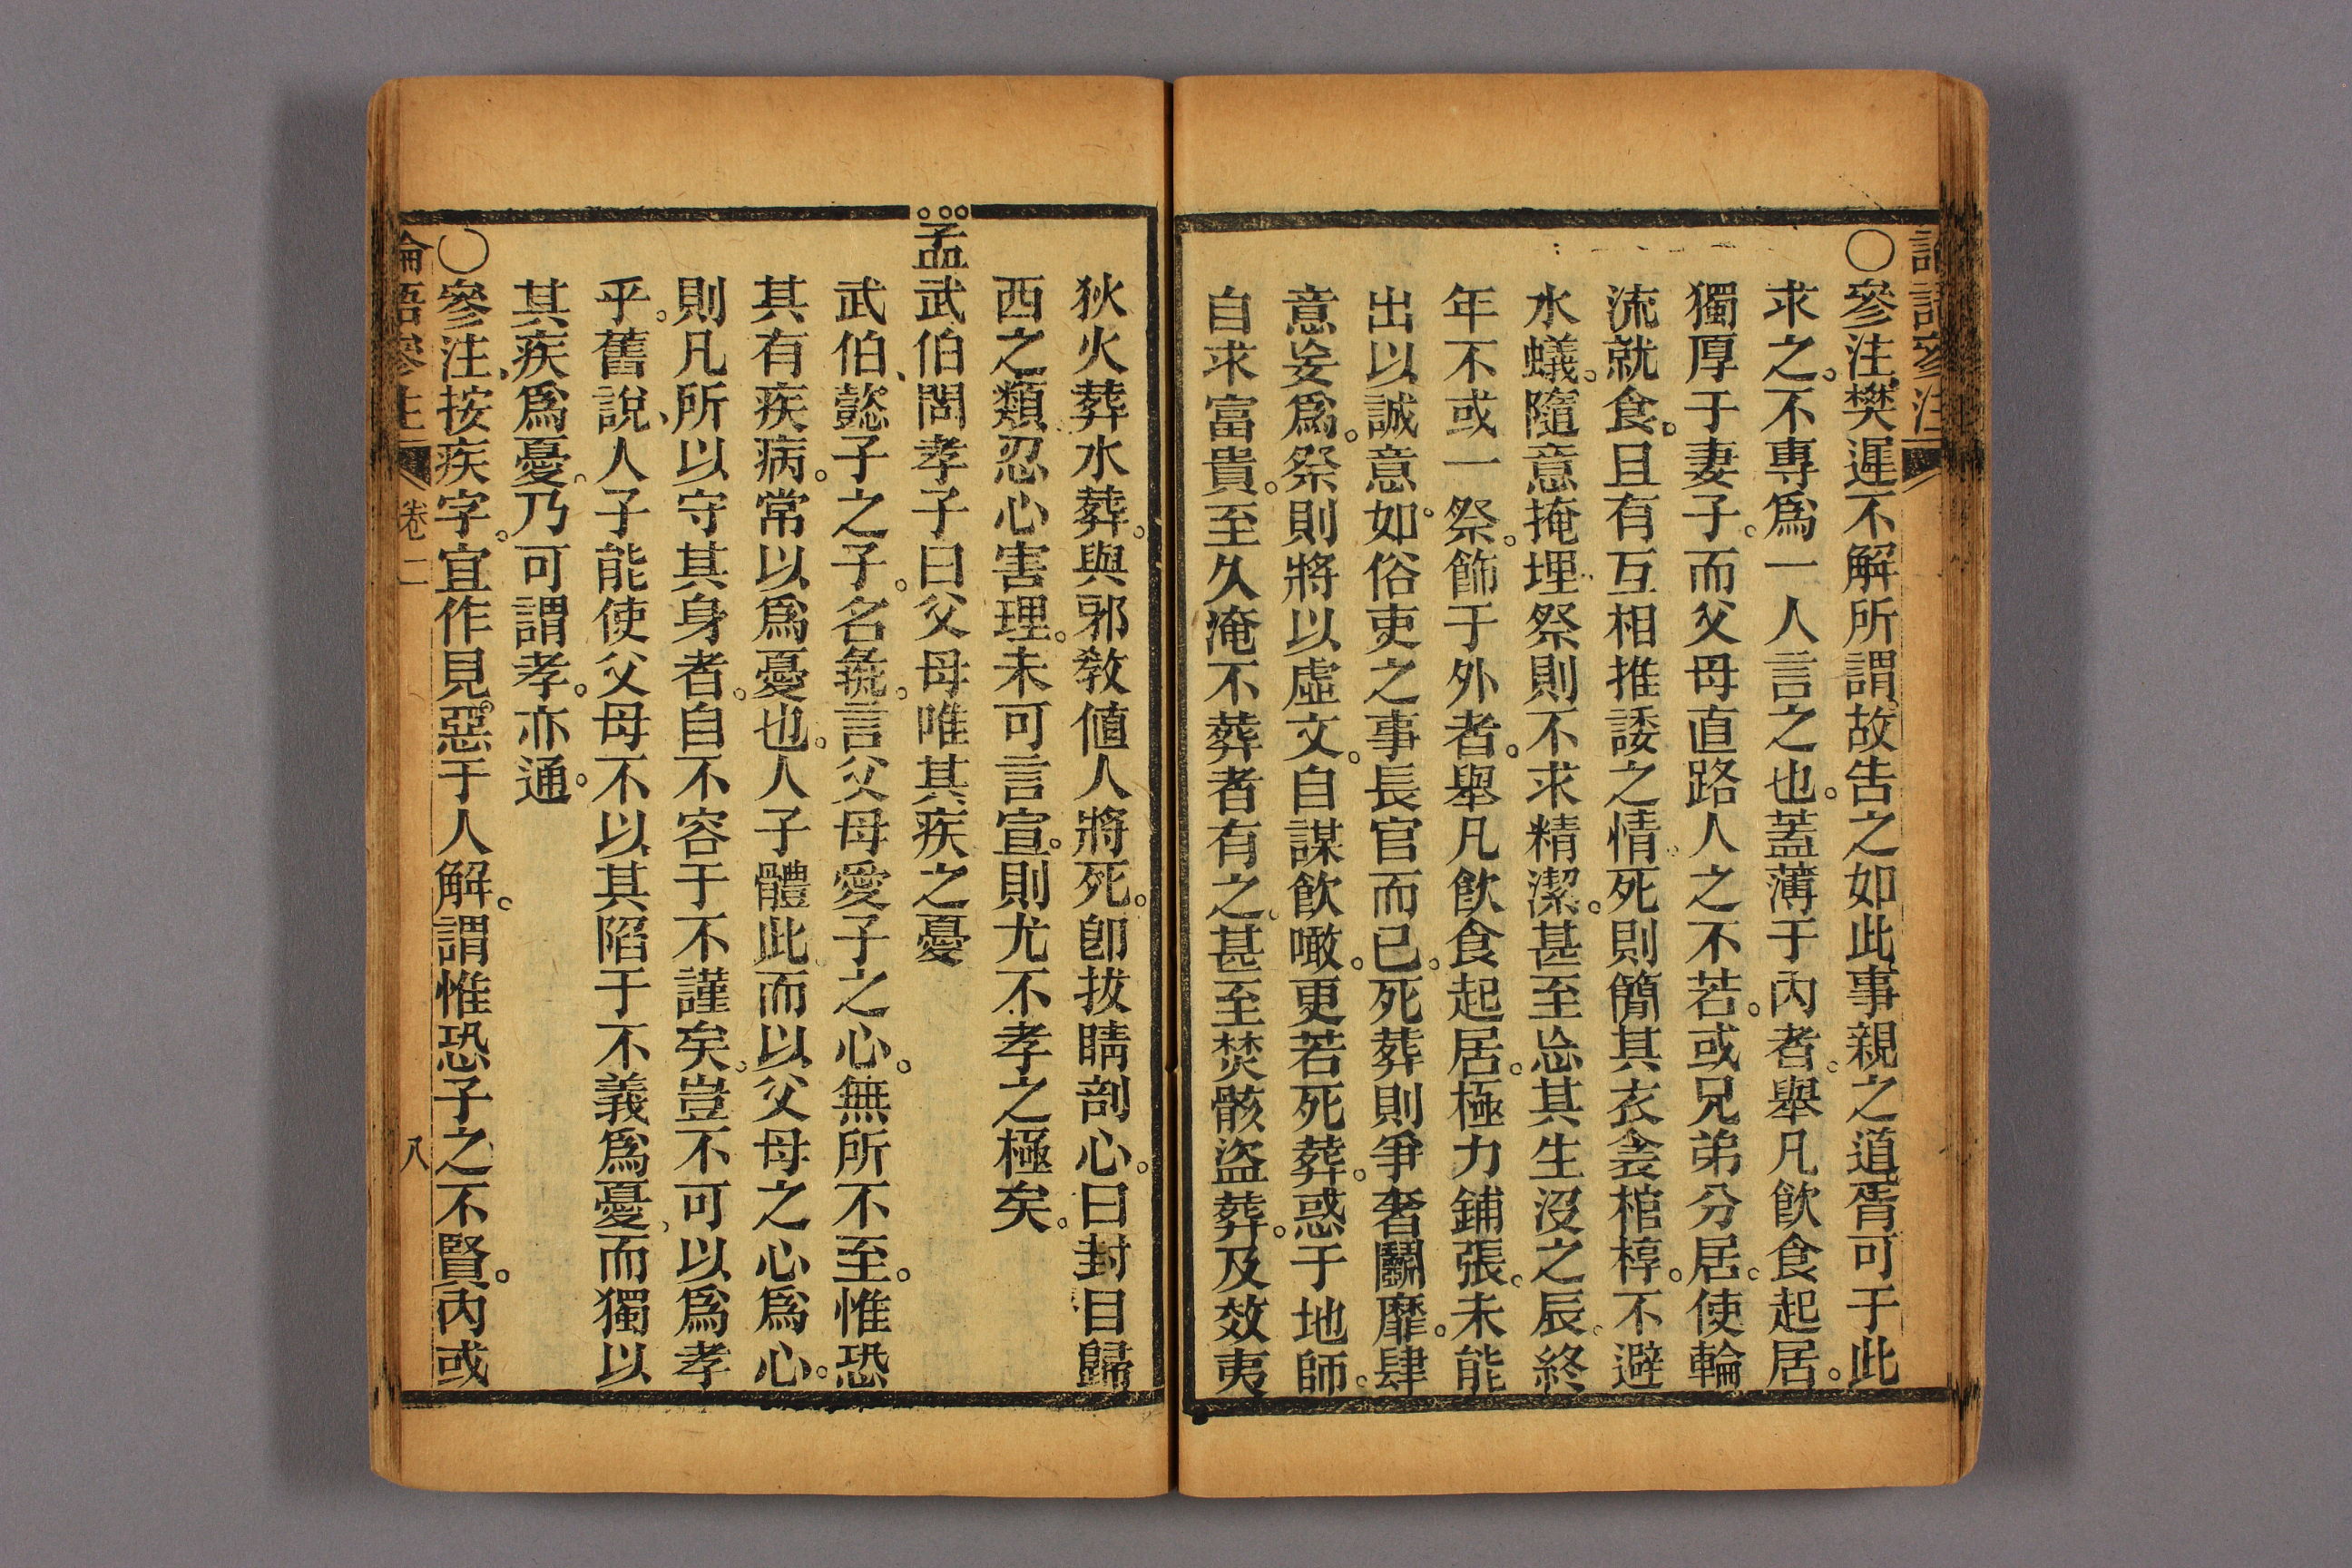 論語參注
〇參注樊遲不解所謂故告之如此事親之道胥可于此
求之。不專爲一人言之也。蓋薄于內者。舉凡飮食起居。
獨厚于妻子。而父母直路人之不若。或兄弟分居。使輪
流就食。且有互相推諉之情。死則簡其衣衾棺椁。不避
水蟻。隨意掩埋。祭則不求精潔。甚至忘其生沒之辰。終
年不或一祭。飾于外者。舉凡飮食起居。極力鋪張。未能
出以誠意。如俗吏之事長官而已。死葬則爭奢鬭靡。肆
意妄爲。祭則將以虛文。自謀飮噉。更若死葬。惑于地師。
自求富貴。至久淹不葬者有之。甚至焚骸盜葬。及效夷
狄火葬水葬。與邪敎値人將死。卽拔睛剖心。曰封目歸
西之類。忍心害理。未可言宣。則尤不孝之極矣。
孟武伯問孝子曰父母唯其疾之憂
武伯、懿子之子。名彘。言父母愛子之心。無所不至。惟恐
其有疾病。常以爲憂也。人子體此。而以父母之心爲心。
則凡所以守其身者。自不容于不謹矣。豈不可以爲孝
乎。舊說、人子能使父母不以其陷于不義爲憂、而獨以
其疾爲憂。乃可謂孝。亦通。
〇參注、按疾字。宜作見惡于人解。謂惟恐子之不賢。內或
論語參注 卷二 八